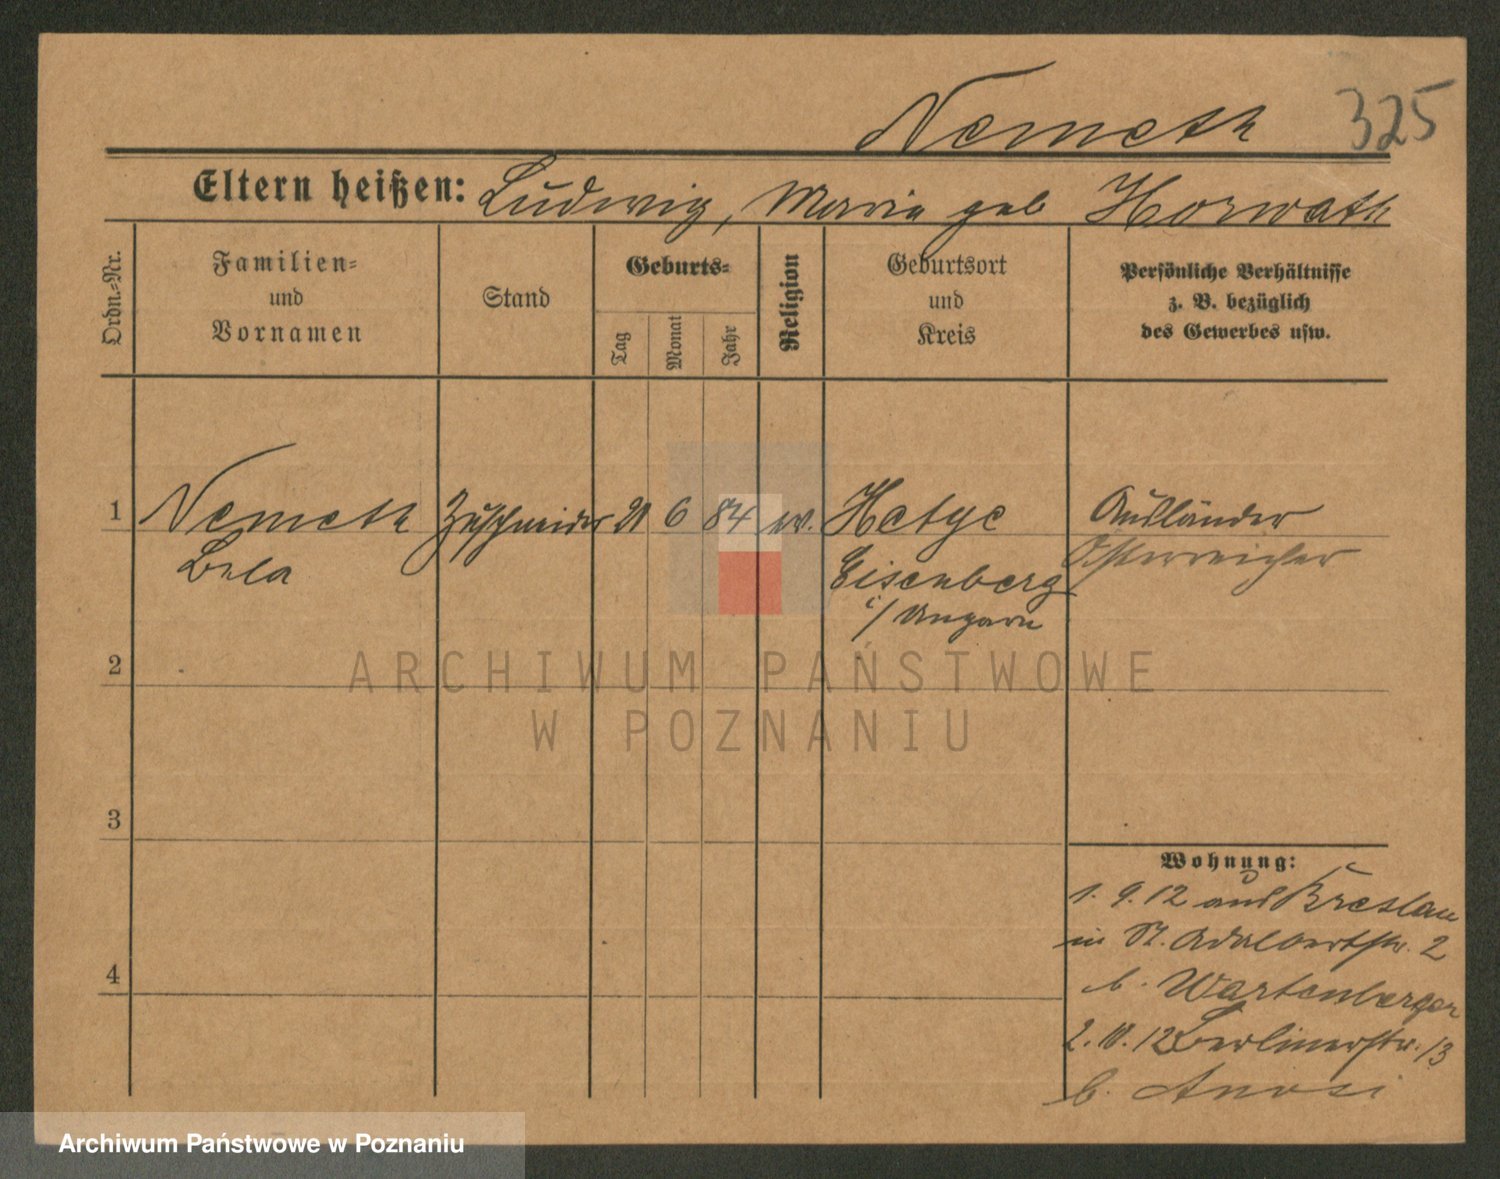 Nemeth 325
Eltern heißen: Ludwig, Maria geb Horwath
Ordn.=Nr.
Familien=
und
Vornamen
Stand
Geburts=
Tag
Monat
Jahr
Religion
Geburtsort
und
Kreis
Persönliche Verhältnisse
z. B. bezüglich
des Gewerbes usw.
1 Nemeth Zuschneider 21 6 84 ev. Hetye Ausländer
Bela Eisenberg Österreicher
i/ Ungarn
2
3
4
Wohnung:
1. 9. 12 aus Breslau
in St. Adalbertstr. 2
b. Wartenberger
2. 10. 12 Berlinerstr. 13
b.
ARCHIWUM PAŃSTWOWE
W POZNANIU
Archiwum Państwowe w Poznaniu